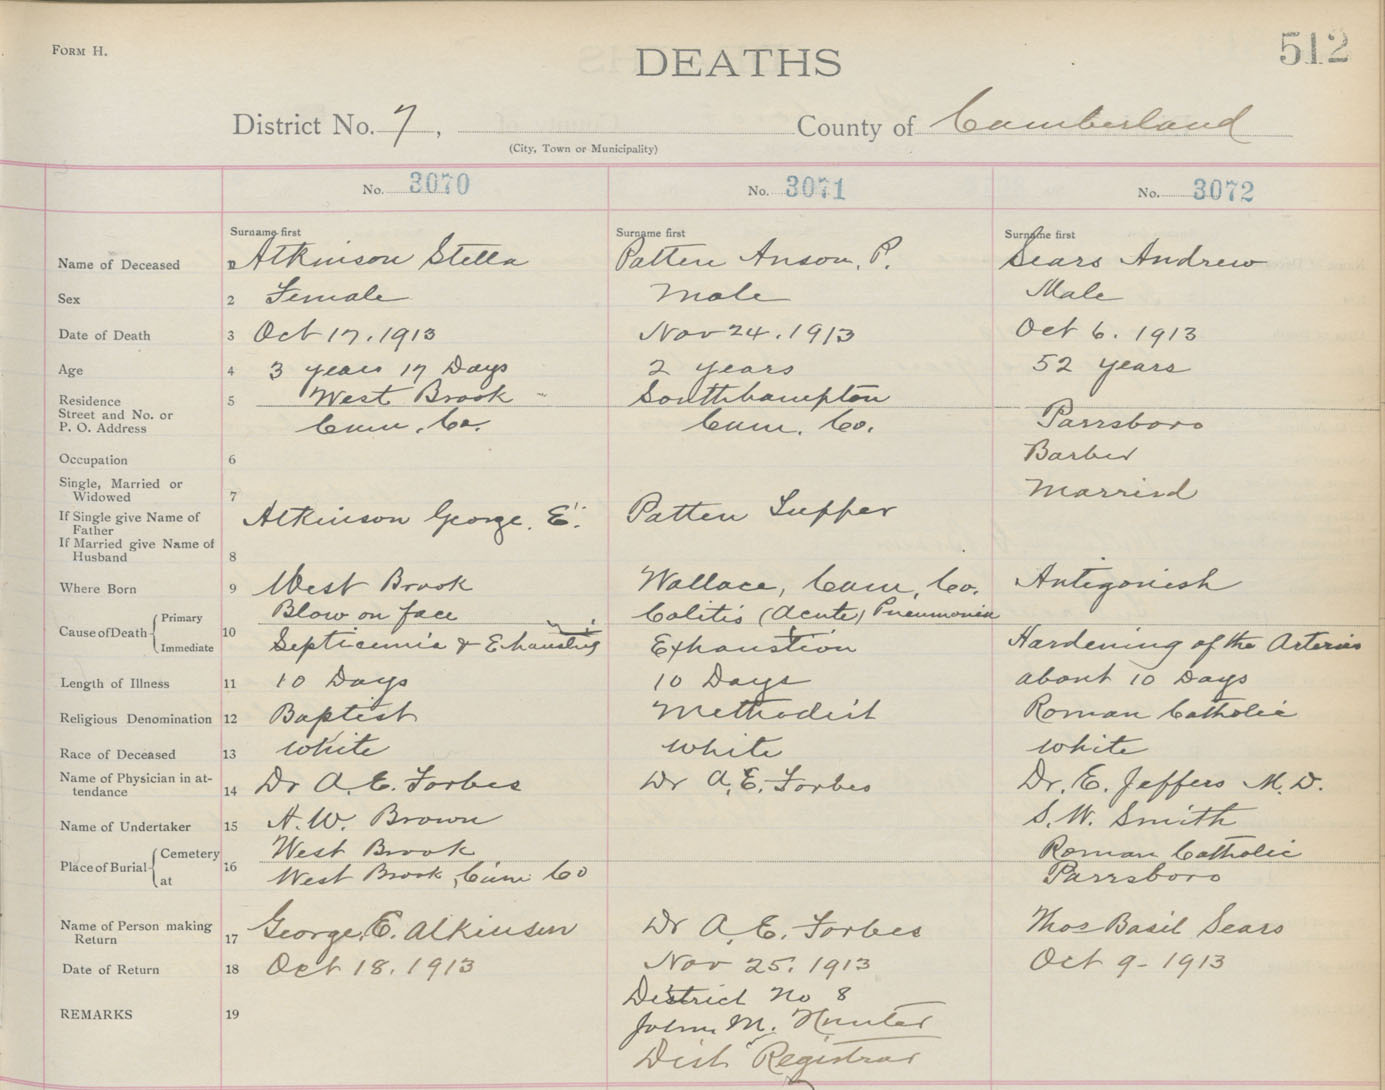 FORM H.
DEATHS
512
District No. 7, County of Cumberland
(City, Town or Municipality)
No. 3070 No. 3071 No. 3072
Surname first Surname first Surname first
Name of Deceased 1 Atkinson Stella Patten Anson, P. Sears Andrew
Sex 2 Female Male Male
Date of Death 3 Oct 17. 1913 Nov 24. 1913 Oct 6. 1913
Age 4 3 years 17 Days 2 years 52 years
Residence 5 West Brook Southhampton
Street and No. or
P. O. Address Cum. Co. Cum. Co. Parrsboro
Occupation 6 Barber
Single, Married or
Widowed 7 Married
If Single give Name of
Father Atkinson George. E. Patten Tupper
If Married give Name of
Husband 8
Where Born 9 West Brook Wallace, Cum, Co. Antigonish
Cause of Death Primary 10 Blow on face Colitis (Acute) Pneumonia
Immediate Septicemia & Exhaustion Exhaustion Hardening of the Arteries
Length of Illness 11 10 Days 10 Days about 10 Days
Religious Denomination 12 Baptist Methodist Roman Catholic
Race of Deceased 13 White White White
Name of Physician in at-
tendance 14 Dr A. E. Forbes Dr A. E. Forbes Dr. E. Jeffers M. D.
Name of Undertaker 15 A. W. Brown S. W. Smith
Place of Burial Cemetery 16 West Brook Roman Catholic
at West Brook, Cum Co Parrsboro
Name of Person making
Return 17 George. E. Atkinson Dr A. E. Forbes Thos Basil Sears
Date of Return 18 Oct 18. 1913 Nov 25. 1913 Oct 9 - 1913
REMARKS 19 District No 8
John M. Hunter
Dist Registrar